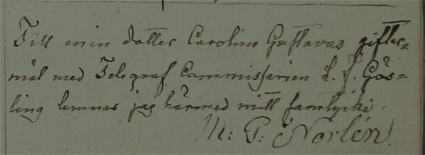 Till min dotter Carolina Gustavas gifter-
mål med Telegraf Commissarien L. J. Gös-
ling lemnas jag härmed mitt samtycke.
M: G: Norlén.